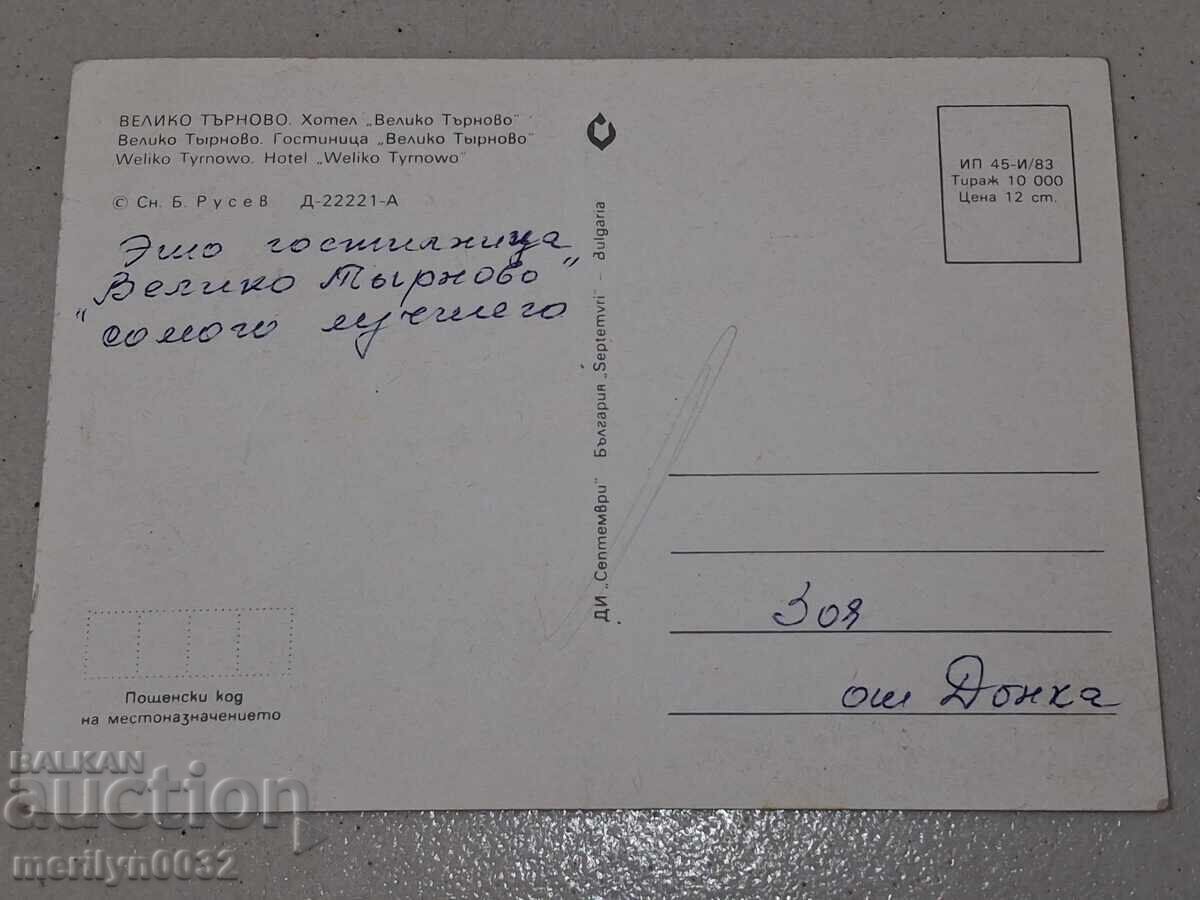 ВЕЛИКО ТЪРНОВО. Хотел „Велико Търново"
Велико Тырново. Гостиница „Велико Тырново"
Weliko Tyrnowo. Hotel „Weliko Tyrnowo"
© Сн. Б. Русев Д-22221-А
Это гостилница
"Велико Тырново"
самого лучшего
Пощенски код
на местоназначението
ДИ „Септември" България „Septemvri" - Bulgaria
ИП 45-И/83
Тираж 10 000
Цена 12 ст.
Зоя
от Донка
BALKAN
auction
merilyn0032